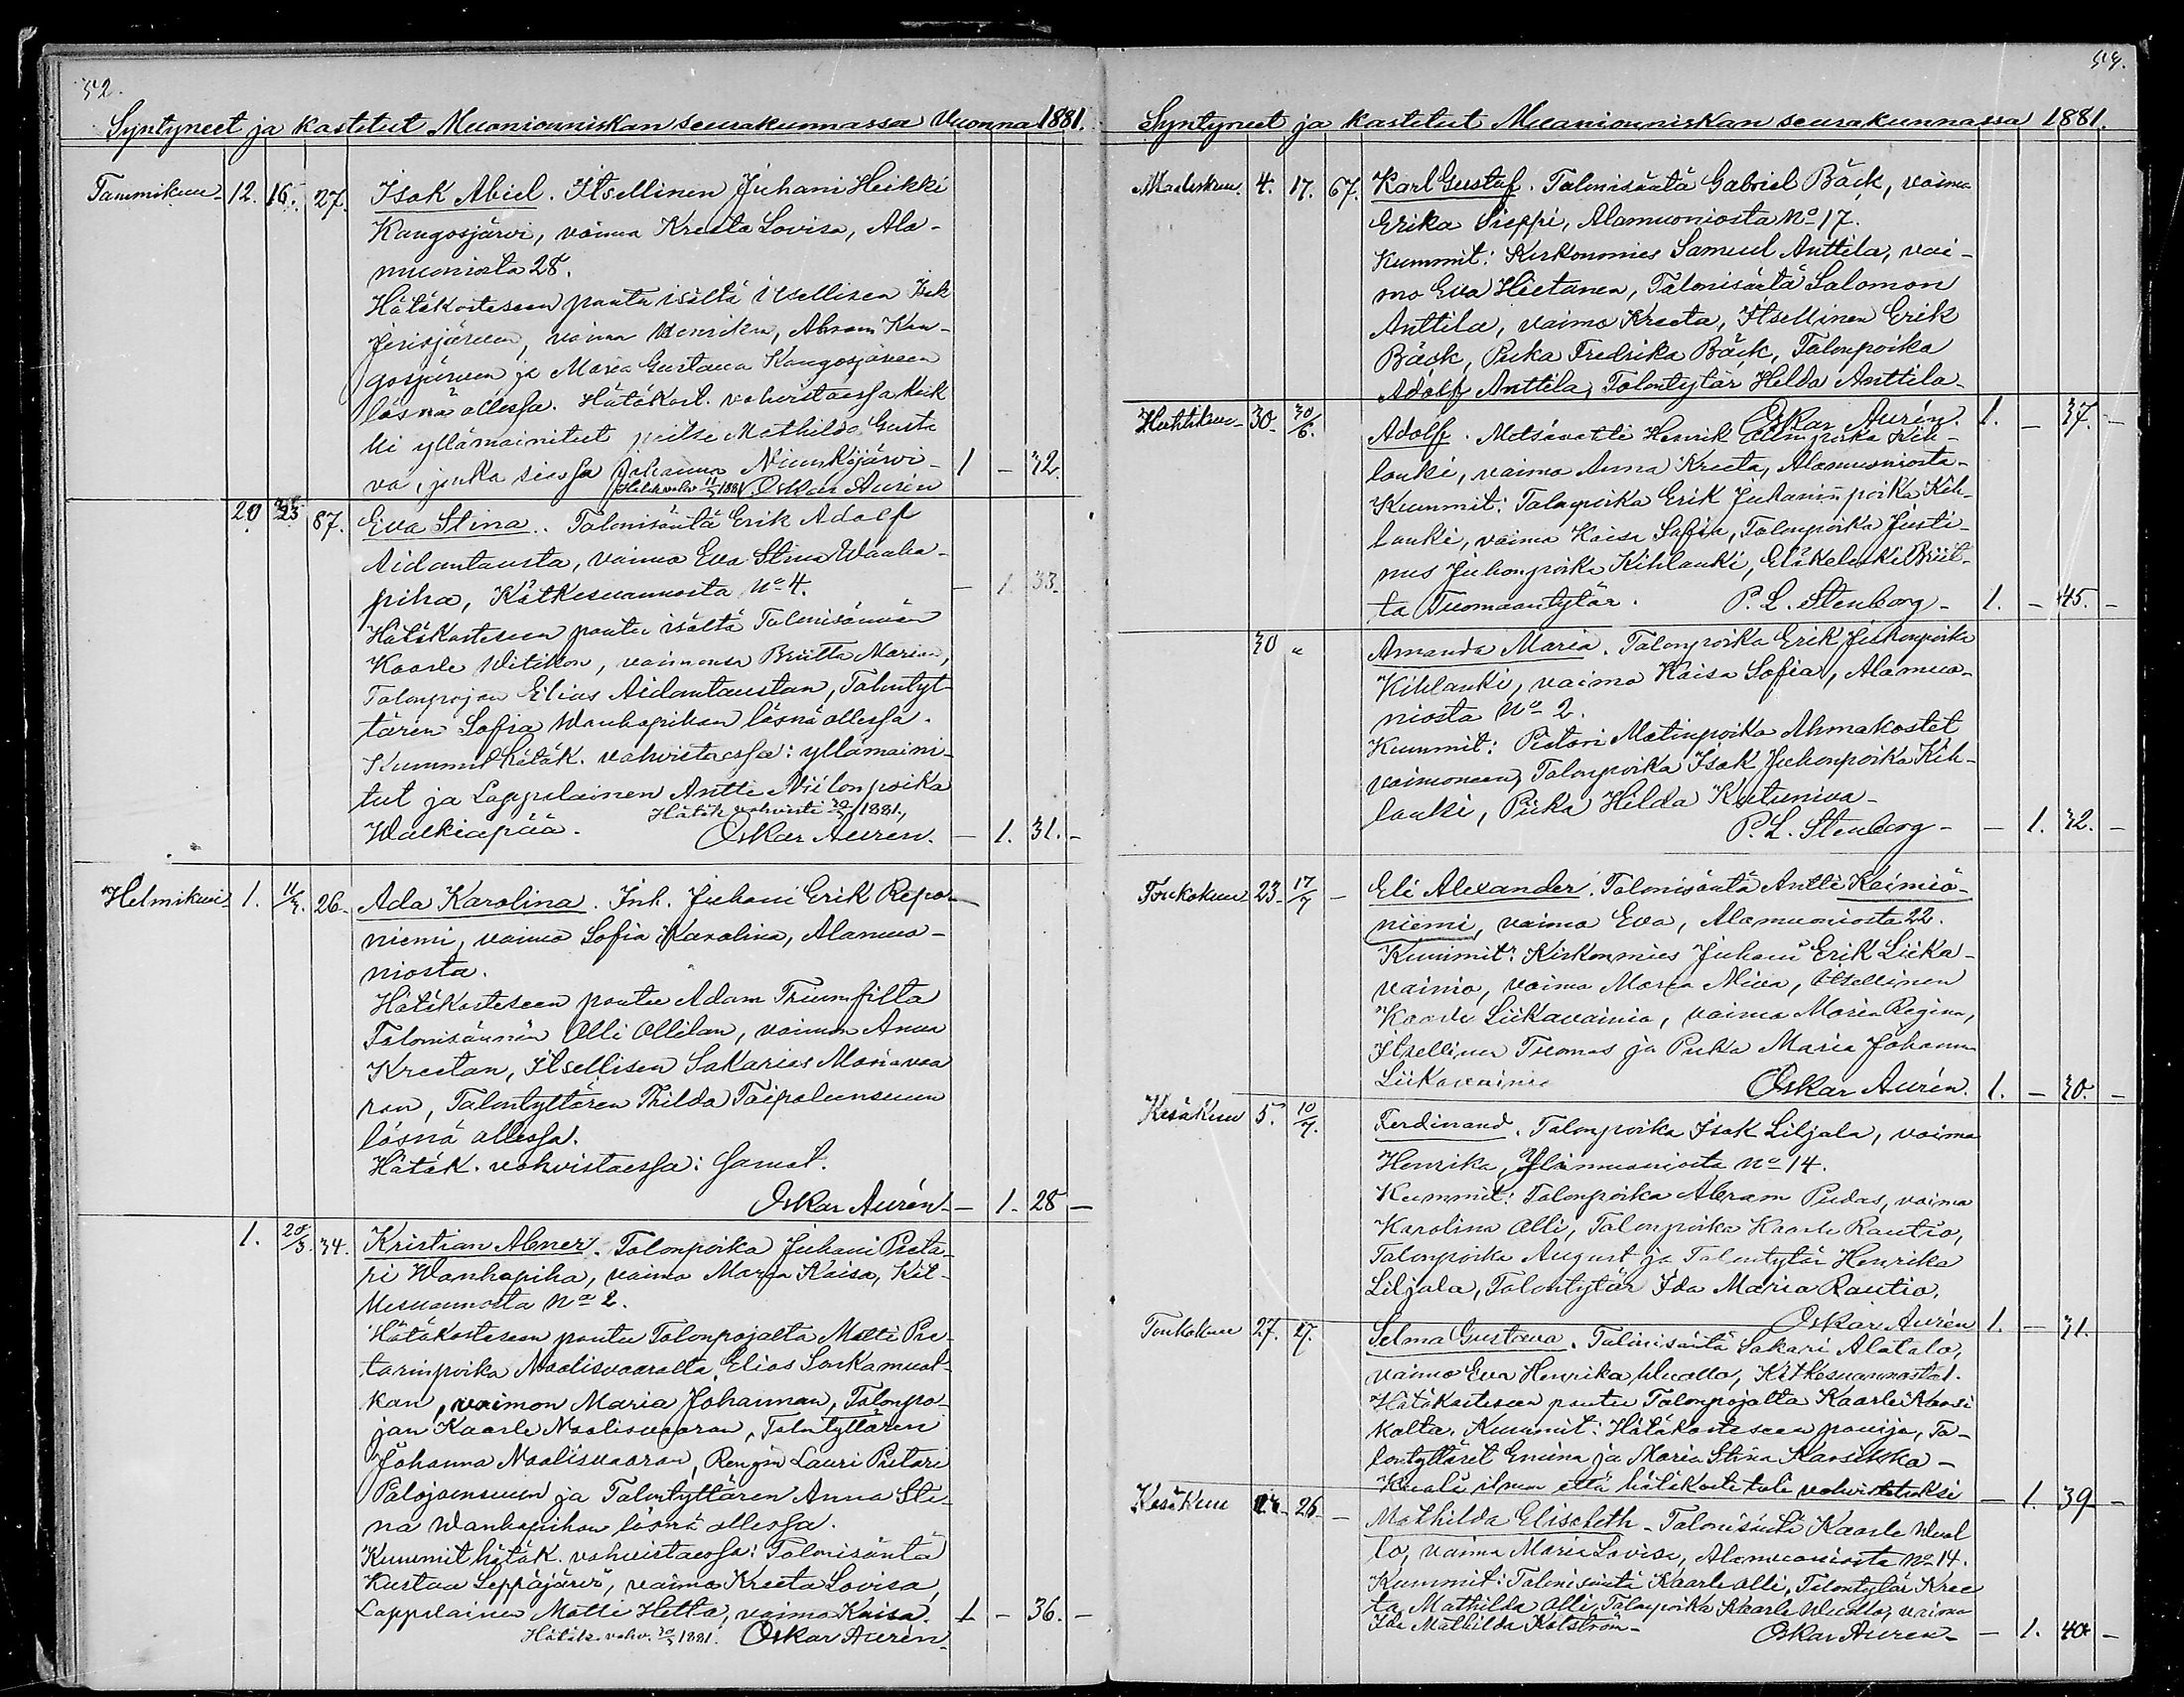 52.
Syntyneet ja kastetut Muonionniskan seurakunnassa Vuonna 1881.
Tammikuu 12. 16. 27. Isak Abiel. Itsellinen Juhani Heikki
Kangosjärvi, vaimo Kreeta Lovisa, Ala-
muoniosta 28.
Hätäkasteseen pantu isältä itsellisen Isak
Jerisjärven, vaimo Henrikan, Abram Kan-
gosjärven ja Maria Gustava Kangosjärven
läsnä ollessa. Hätäkast. vahvistaessa kaik
ki yllämainitut paitse Mathilda Gusta
va, jonka siassa Johanna Niemkijärvi - 1 - 32.
Hätäk vahv 11/3 1881 Oskar Aurén
20 23 87. Eva Stina. Talonisäntä Erik Adolf
Aidantausta, vaimo Eva Stina Wanha-
piha, Kätkesuannosta No 4. - 1 33.
Hätäkasteseen pantu isältä Talonisännän
Kaarle Witikon, vaimonsa Briitta Marian,
Talonpojan Elias Aidantaustan, Talontyt-
tären Sofia Wanhapihan läsnä ollessa.
Kummit hätäk. vahvistaessa: yllämaini-
tut ja Lappalainen Antti Niilonpoika
Hätäk vahvisti 1881.
Walkiapää. Oskar Aurén. - 1. 31. -
Helmikuu 1. 11/3. 26. Ada Karolina. Inh. Juhani Erik Repo-
niemi, vaimo Sofia Karolina, Alamuo-
niosta.
Hätäkasteseen pantu Adam Triumfilta
Talonisännän Olli Ollilan, vaimon Anna
Kreetan, Itsellisen Sakarias Mariavaa
ran, Talontyttären Thilda Taipaleensuun
läsnä ollessa.
Hätäk. vahvistaessa: samat.
Oskar Aurén. - 1. 28 -
1. 20/3. 34. Kristian Abner. Talonpoika Juhani Pieta-
ri Wanhapiha, vaimo Marja Kaisa, Kät-
kesuannosta No 2.
Hätäkasteseen pantu Talonpojalta Matti Pie-
tarinpoika Maalisvaaralta, Elias Sonkamuot-
kan, vaimon Maria Johannan, Talonpo-
jan Kaarle Maalisvaaran, Talontyttären
Johanna Maalisvaaran, Rengin Lauri Pietari
Palojoensuun ja Talontyttären Anna Sti-
na Wanhapihan läsnä ollessa.
Kummit hätäk. vahvistaessa: Talonisäntä
Kustaa Leppäjärvi, vaimo Kreeta Lovisa,
Lappalainen Matti Hetta, vaimo Kaisa. 1 - 36. -
Hätäk. vahv. 20/3 1881. Oskar Aurén
53.
Syntyneet ja kastetut Muonionniskan seurakunnassa 1881.
Maaliskuu 4. 17. 67. Karl Gustaf. Talonisäntä Gabriel Bäck, vaimo
Erika Sieppi, Alamuoniosta No 17.
Kummit: Kirkonmies Samuel Anttila, vai-
mo Eva Hietanen, Talonisäntä Salomon
Anttila, vaimo Kreeta, Itsellinen Erik
Bäck, Piika Fredrika Bäck, Talonpoika
Adolf Anttila, Talontytär Hilda Anttila-
Oskar Aurén. 1. - 37. -
Huhtikuu 30. 30/6. Adolf. Metsävahti Henrik Kih-
lanki, vaimo Anna Kreeta, Alamuoniosta-
Kummit: Talonpoika Erik Juhaninpoika Kih-
lanki, vaimo Kaisa Sofia, Talonpoika Justi-
nus Juhonpoika Kihlanki, Eläkeleski Briit-
ta Tuomaantytär. P. L. Stenborg - 1. - 45. -
30 " Amanda Maria. Talonpoika Erik Juhonpoika
Kihlanki, vaimo Kaisa Sofia, Alamuo-
niosta No 2.
Kummit: Pietari Matinpoika Ahmakostet
vaimoneen, Talonpoika Isak Juhonpoika Kih-
lanki, Piika Hilda Kutuniva-
P. L. Stenborg - - 1. 32. -
Toukokuu 23. 17/7 - Eli Alexander. Talonisäntä Antti Keimiö-
niemi, vaimo Eva, Alamuoniosta 22.
Kummit: Kirkonmies Juhani Erik Liika-
vainio, vaimo Maria Niva, Itsellinen
Kaarle Liikavainio, vaimo Maria Regina,
Itsellinen Tuomas ja Piika Maria Johanna
Liikavainio Oskar Aurén. 1. - 30. -
Kesäkuu 5. 10/7. Ferdinand. Talonpoika Isak Liljala, vaimo
Henrika, Ylimuoniosta No 14.
Kummit: Talonpoika Abram Pudas, vaimo
Karolina Olli, Talonpoika Kaarle Rautio,
Talonpoika August ja Talontytär Henrika
Liljala, Talontytär Ida Maria Rautio.
Oskar Aurén 1. - 31.
Toukokuu 27. 17. Selma Gustava. Talonisäntä Sakari Alatalo,
vaimo Eva Henrika Muotto, Kätkesuannosta 1.
Hätäkasteseen pantu Talonpojalta Kaarle Kansi
kalta. Kummit: Hätäkasteseen panija, Ta-
lontyttäret Emma ja Maria Stina Karsikko-
Kuoli ilman että hätäkaste tuli vahvistetuksi - 1. 39 -
Kesäkuu 26. - Mathilda Elisabeth. Talonisäntä Kaarle
lo, vaimo Maria Lovisa, Alamuoniosta No 14.
Kummit: Talonisäntä Kaarle Olli, Talontytär Kree
ta Mathilda Olli, Talonpoika Kaarle vaimo
Ida Mathilda Kolström - Oskar Aurén - - 1. 40 -